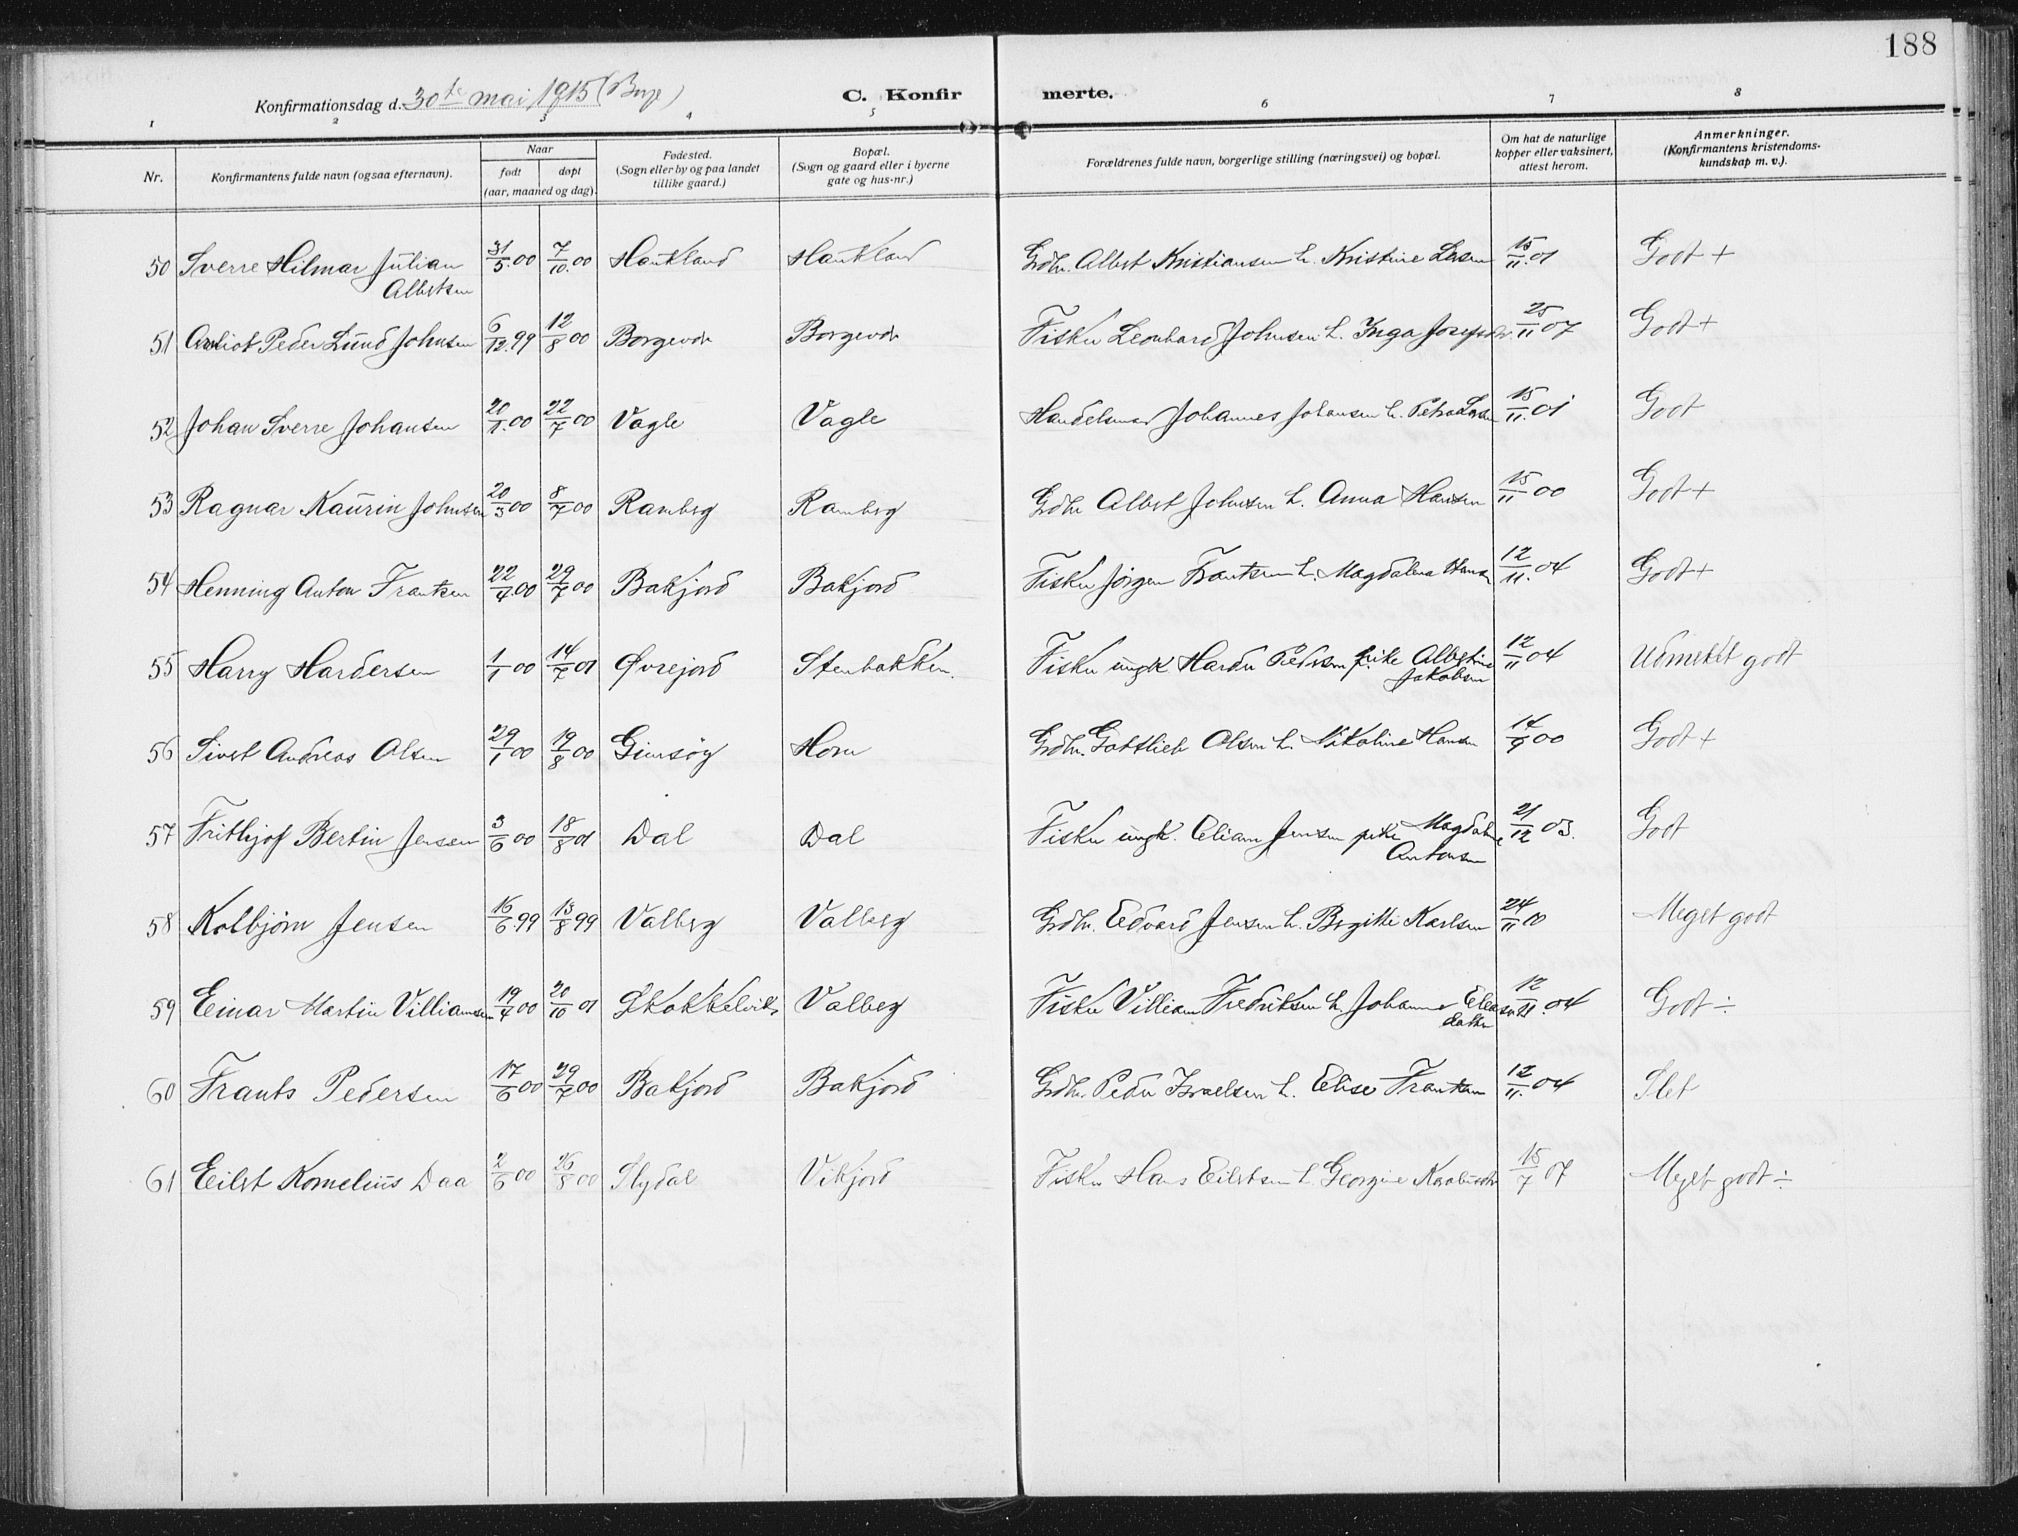 188
Konfirmationsdag d. 30te mai 1915 (Borge)
C. Konfirmerte.
1 2 3 4 5 6 7 8
Nr.
Konfirmantens fulde navn (ogsaa efternavn).
Naar
født døpt
(aar, maaned og dag).
Fødested.
(Sogn eller by og paa landet
tillike gaard.)
Bopæl.
(Sogn og gaard eller i byerne
gate og hus-nr.)
Forældrenes fulde navn, borgerlige stilling (næringsvei) og bopæl.
Om hat de naturlige
kopper eller vaksinert,
attest herom.
Anmerkninger.
(Konfirmantens kristendoms-
kundskap m. v.).
50 Sverre Hilmar Julian 31/5.00 7/10.00 Haukland Haukland Grdbr. Albert Kristiansen h. Kristine Larsen 15/11.01 Godt +
Albertsen
51 Peder Lund Johnsen 6/12.99 12/8 00 Borgevær Borgevær Fisker Leonhard Johnsen h. Inga Josefsdr. 25/11 07 Godt +
52 Johan Sverre Johansen 20/1.00 22/7 00 Vagle Vagle Handelsmand Johannes Johansen h. Petra Larsen 15/11.01 Godt
53 Ragnar Kaurin Johnsen 20/3 00 8/7 00 Ramberg Ramberg Grdbr Albert Johnsen h. Anna Hansen 15/11 00 Godt +
54 Henning Anton Frantsen 22/4.00 29/7 00 Bakjord Bakjord Fisker Jørgen Frantsen h. Magdalena Hansen 12/11.04 Godt +
55 Harry Hardersen 1/1 00 14/7 01 Øvrejord Stenbakken. Fisker ungk Harder Pedersen pike Albertine 12/11 04 Udmerket godt
Jakobsen
56 Sivert Andreas Olsen 29/1 00 19/8 00 Gimsøy Horn Grdbr. Gottlieb Olsen h. Nikoline Hansen 14/9 00 Godt +
57 Frithjof Bertin Jensen 3/6 00 18/8 01 Dal Dal Fisker ungk. Jensen pike Magdalene 21/12 03. Godt
Antonsen
58 Kolbjørn Jensen 16/6.99 13/8 99 Valberg Valberg Grdbr. Edvard Jensen h. Birgitte Karlsen 24/11 10 Meget godt
59 Einar Martin Villiamsen 19/4 00 20/10 01 Skokkelvik Valberg Fisker Villiam Fredriksen h. Johanna 12/11.04 Godt ÷
60 Frants Pedersen 17/6 00 29/7 00 Bakjord Bakjord Grdbr. Peder Israelsen h. Elise Frantsen 12/11.04 Slet
61 Eilert Kornelius Daa 2/6 00 26/8 00 Slydal Vikjord Fisker Hans Eilertsen h. Georgine 15/7 07 Meget godt ÷